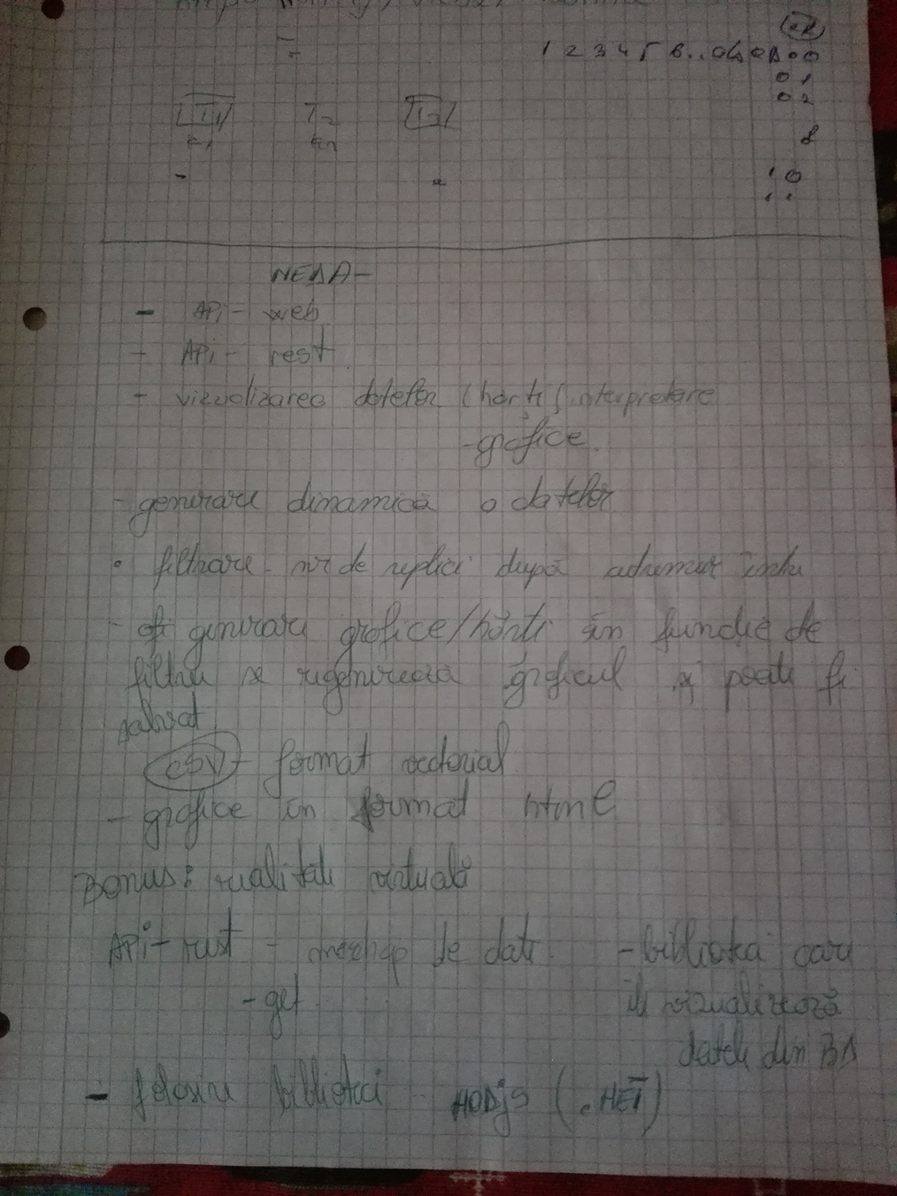 1 2 3 4 5 6 . .
0 1
0 2
8
1 0
1 1
T2
- API - web
- API - rest
- vizualizarea datelor (hărți, interpretare
- grafice
- generare dinamică a datelor
• filtrare - nr de replici după
- generare grafice/hărți în funcție de
filtru se regenerează graficul și poate fi
salvat
CSV - format vectorial
- grafice în format html
Bonus: realitate virtuală
API-rest - de date - bibliotecă care
- get îl vizualizează
datele din BD
- folosire biblioteci NODjs (.NET)